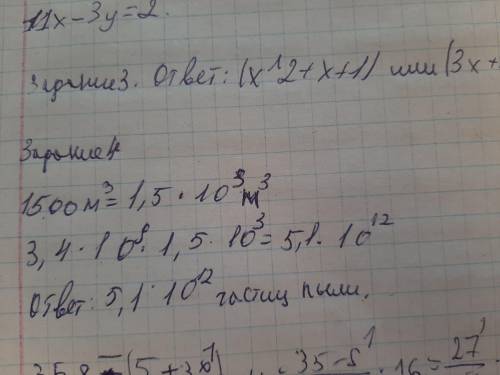 11x-3y=2.
Задание3. Ответ: (x^2+x+1) или (3x+
Задание4
1500м³=1,5·10³м³
3,4·10⁹·1,5·10³=5,1·10¹²
Ответ: 5,1·10¹² частиц пыли.
35-8¹ ·16=27¹